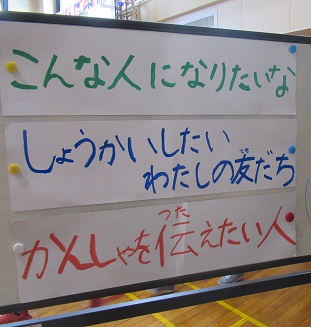 こんな人になりたいな
しょうかいしたい
わたしの友だち
かんしゃを伝えたい人